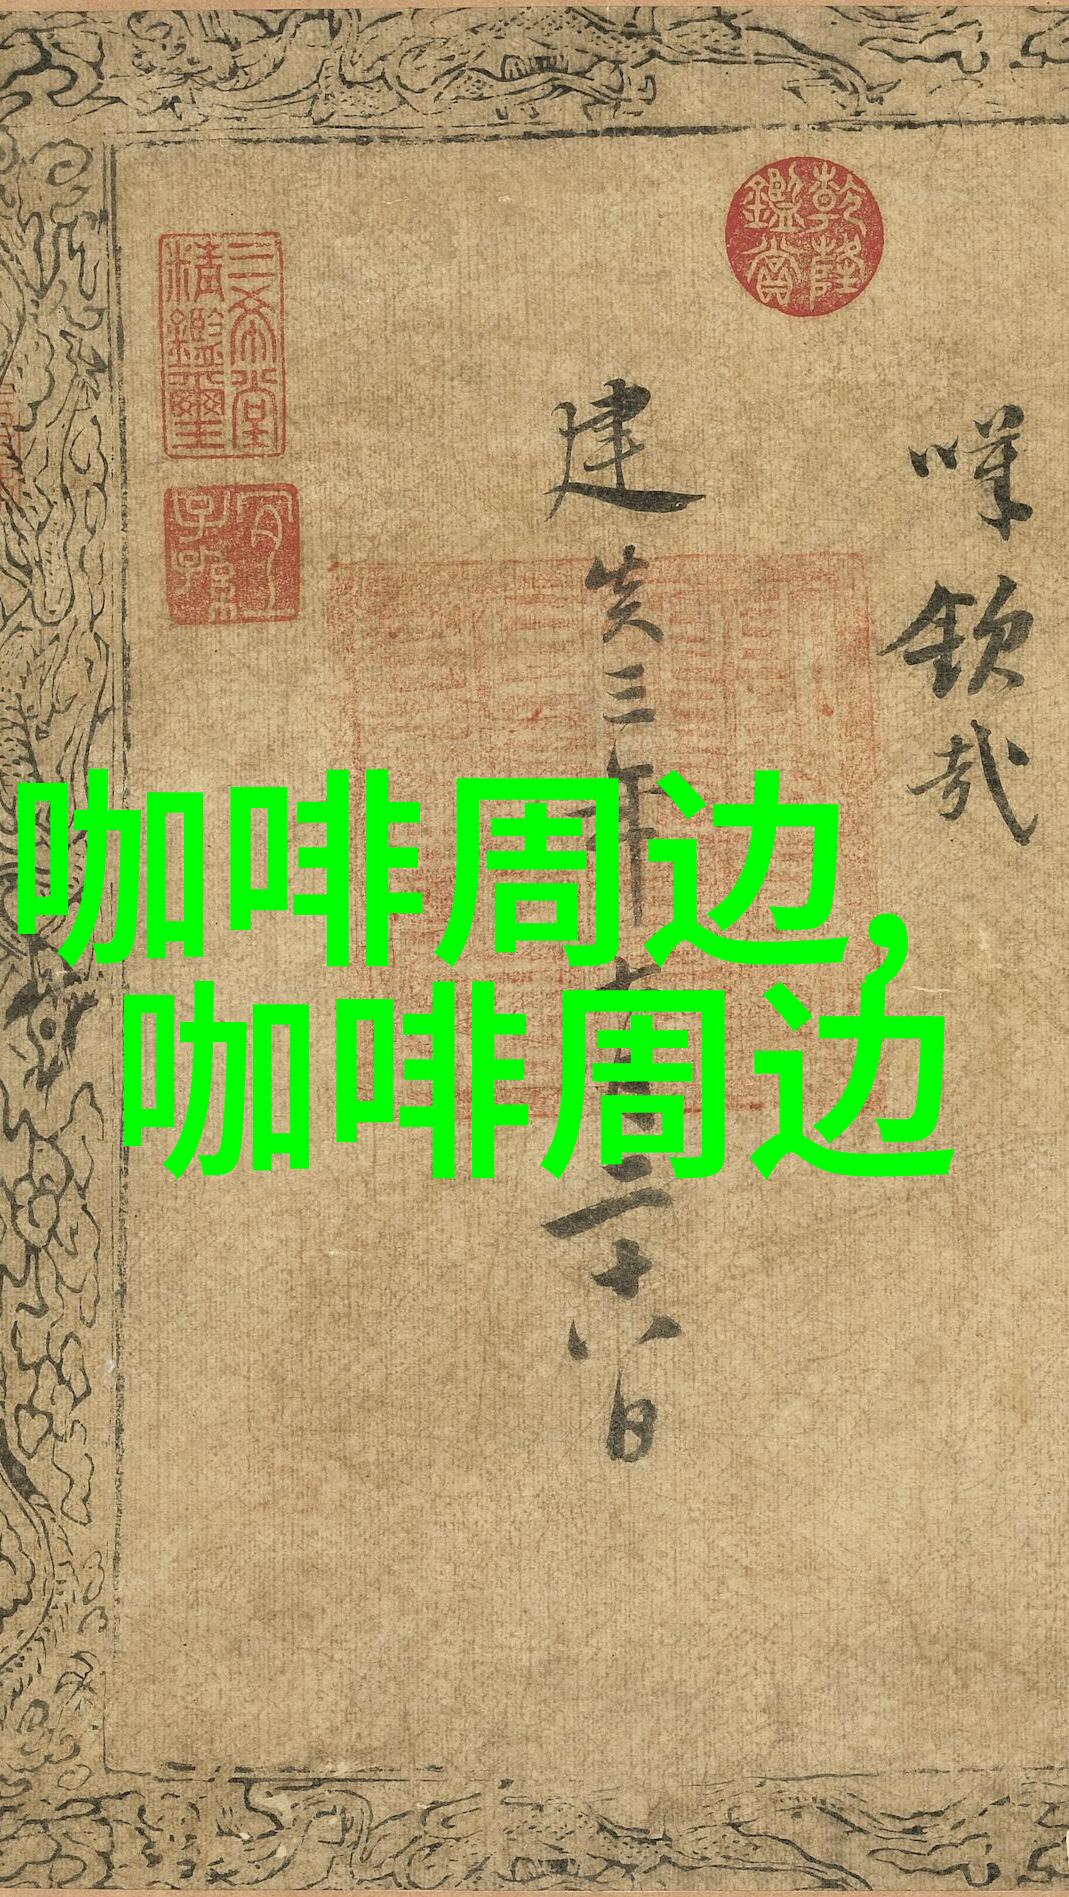 欽哉
乾隆
鑑賞
建炎三年
二十八日
三希堂
精鑑璽
宜
子孫
咖啡周边,
咖啡周边